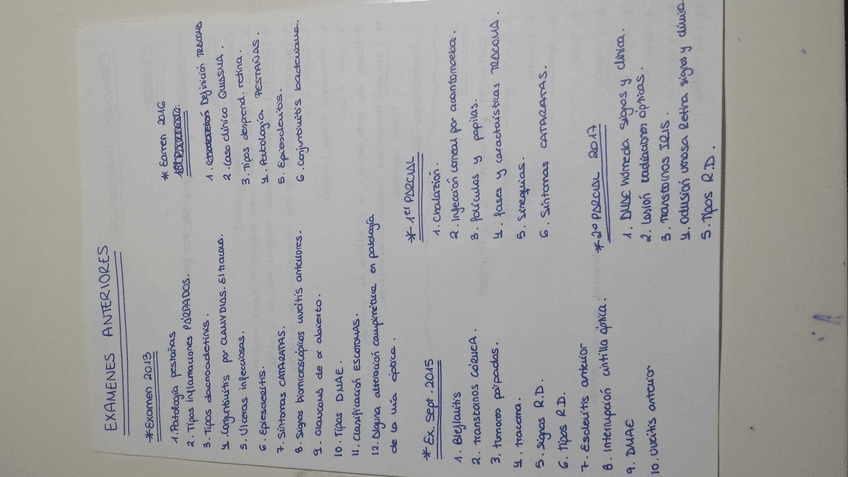 EXAMENES ANTERIORES
* Examen 2013
1. Patología pestañas
2. Tipos inflamaciones PÁRPADOS.
3. Tipos dacrioadenitis.
4. Conjuntivitis por CLAMYDIAS.
5. Ulceras infecciosas.
6. Epiescleritis.
7. Síntomas CATARATAS.
8. Signos biomicroscópicos uveítis anteriores.
9. Glaucoma de α abierto.
10. Tipos DMAE.
11. Clasificación ESCOTOMAS.
12. Dibuja alteración campimétrica en patología
de la vía óptica.
* Examen 2016
1. Definición TRACOMA
2. Caso clínico QUIASMA.
3. Tipos desprend. retina.
4. Patología PESTAÑAS.
5. Epiescleritis.
6. Conjuntivitis bacteriana.
* Ex. Sept. 2015
1. Blefaritis
2. Transtornos CÓRNEA.
3. Tumores párpados.
4. Tracoma.
5. Signos R.D.
6. Tipos R.D.
7. Escleritis anterior
8. Interrupción cintilla óptica.
9. DMAE
10. Uveítis anterior
* 1er PARCIAL
1. Chalazión.
2. Infección corneal por acantamoeba.
3. Folículos y papilas.
4. Fases y características TRACOMA.
5. Sinequias.
6. Síntomas CATARATAS.
* 2º PARCIAL 2017
1. DMAE húmeda signos y clínica.
2. Lesión radiaciones ópticas.
3. Transtornos IRIS.
4. Oclusión venosa Retina signos y clínica
5. Tipos R.D.